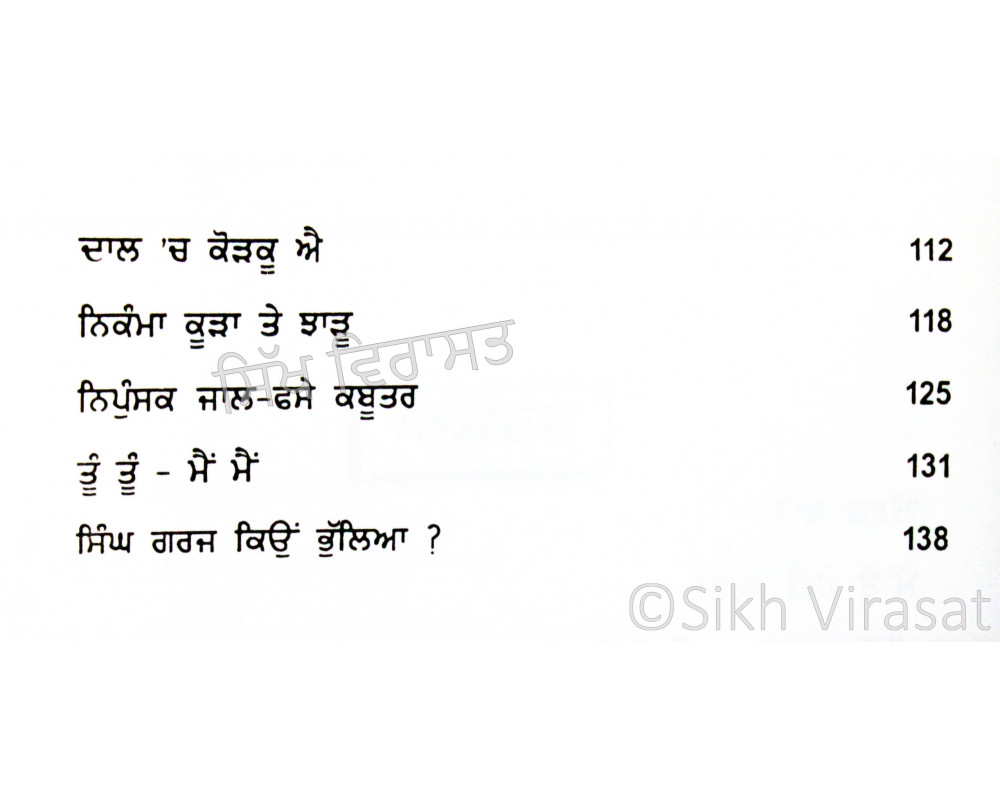 ਦਾਲ 'ਚ ਕੋੜਕੂ ਐ 112
ਨਿਕੰਮਾ ਕੂੜਾ ਤੇ ਝਾੜੂ 118
ਸਿੱਖ ਵਿਰਾਸਤ
ਨਿਪੁੰਸਕ ਜਾਲ-ਫਸੇ ਕਬੂਤਰ 125
ਤੂੰ ਤੂੰ - ਮੈਂ ਮੈਂ 131
ਸਿੰਘ ਗਰਜ ਕਿਉਂ ਭੁੱਲਿਆ ? 138
©Sikh Virasat